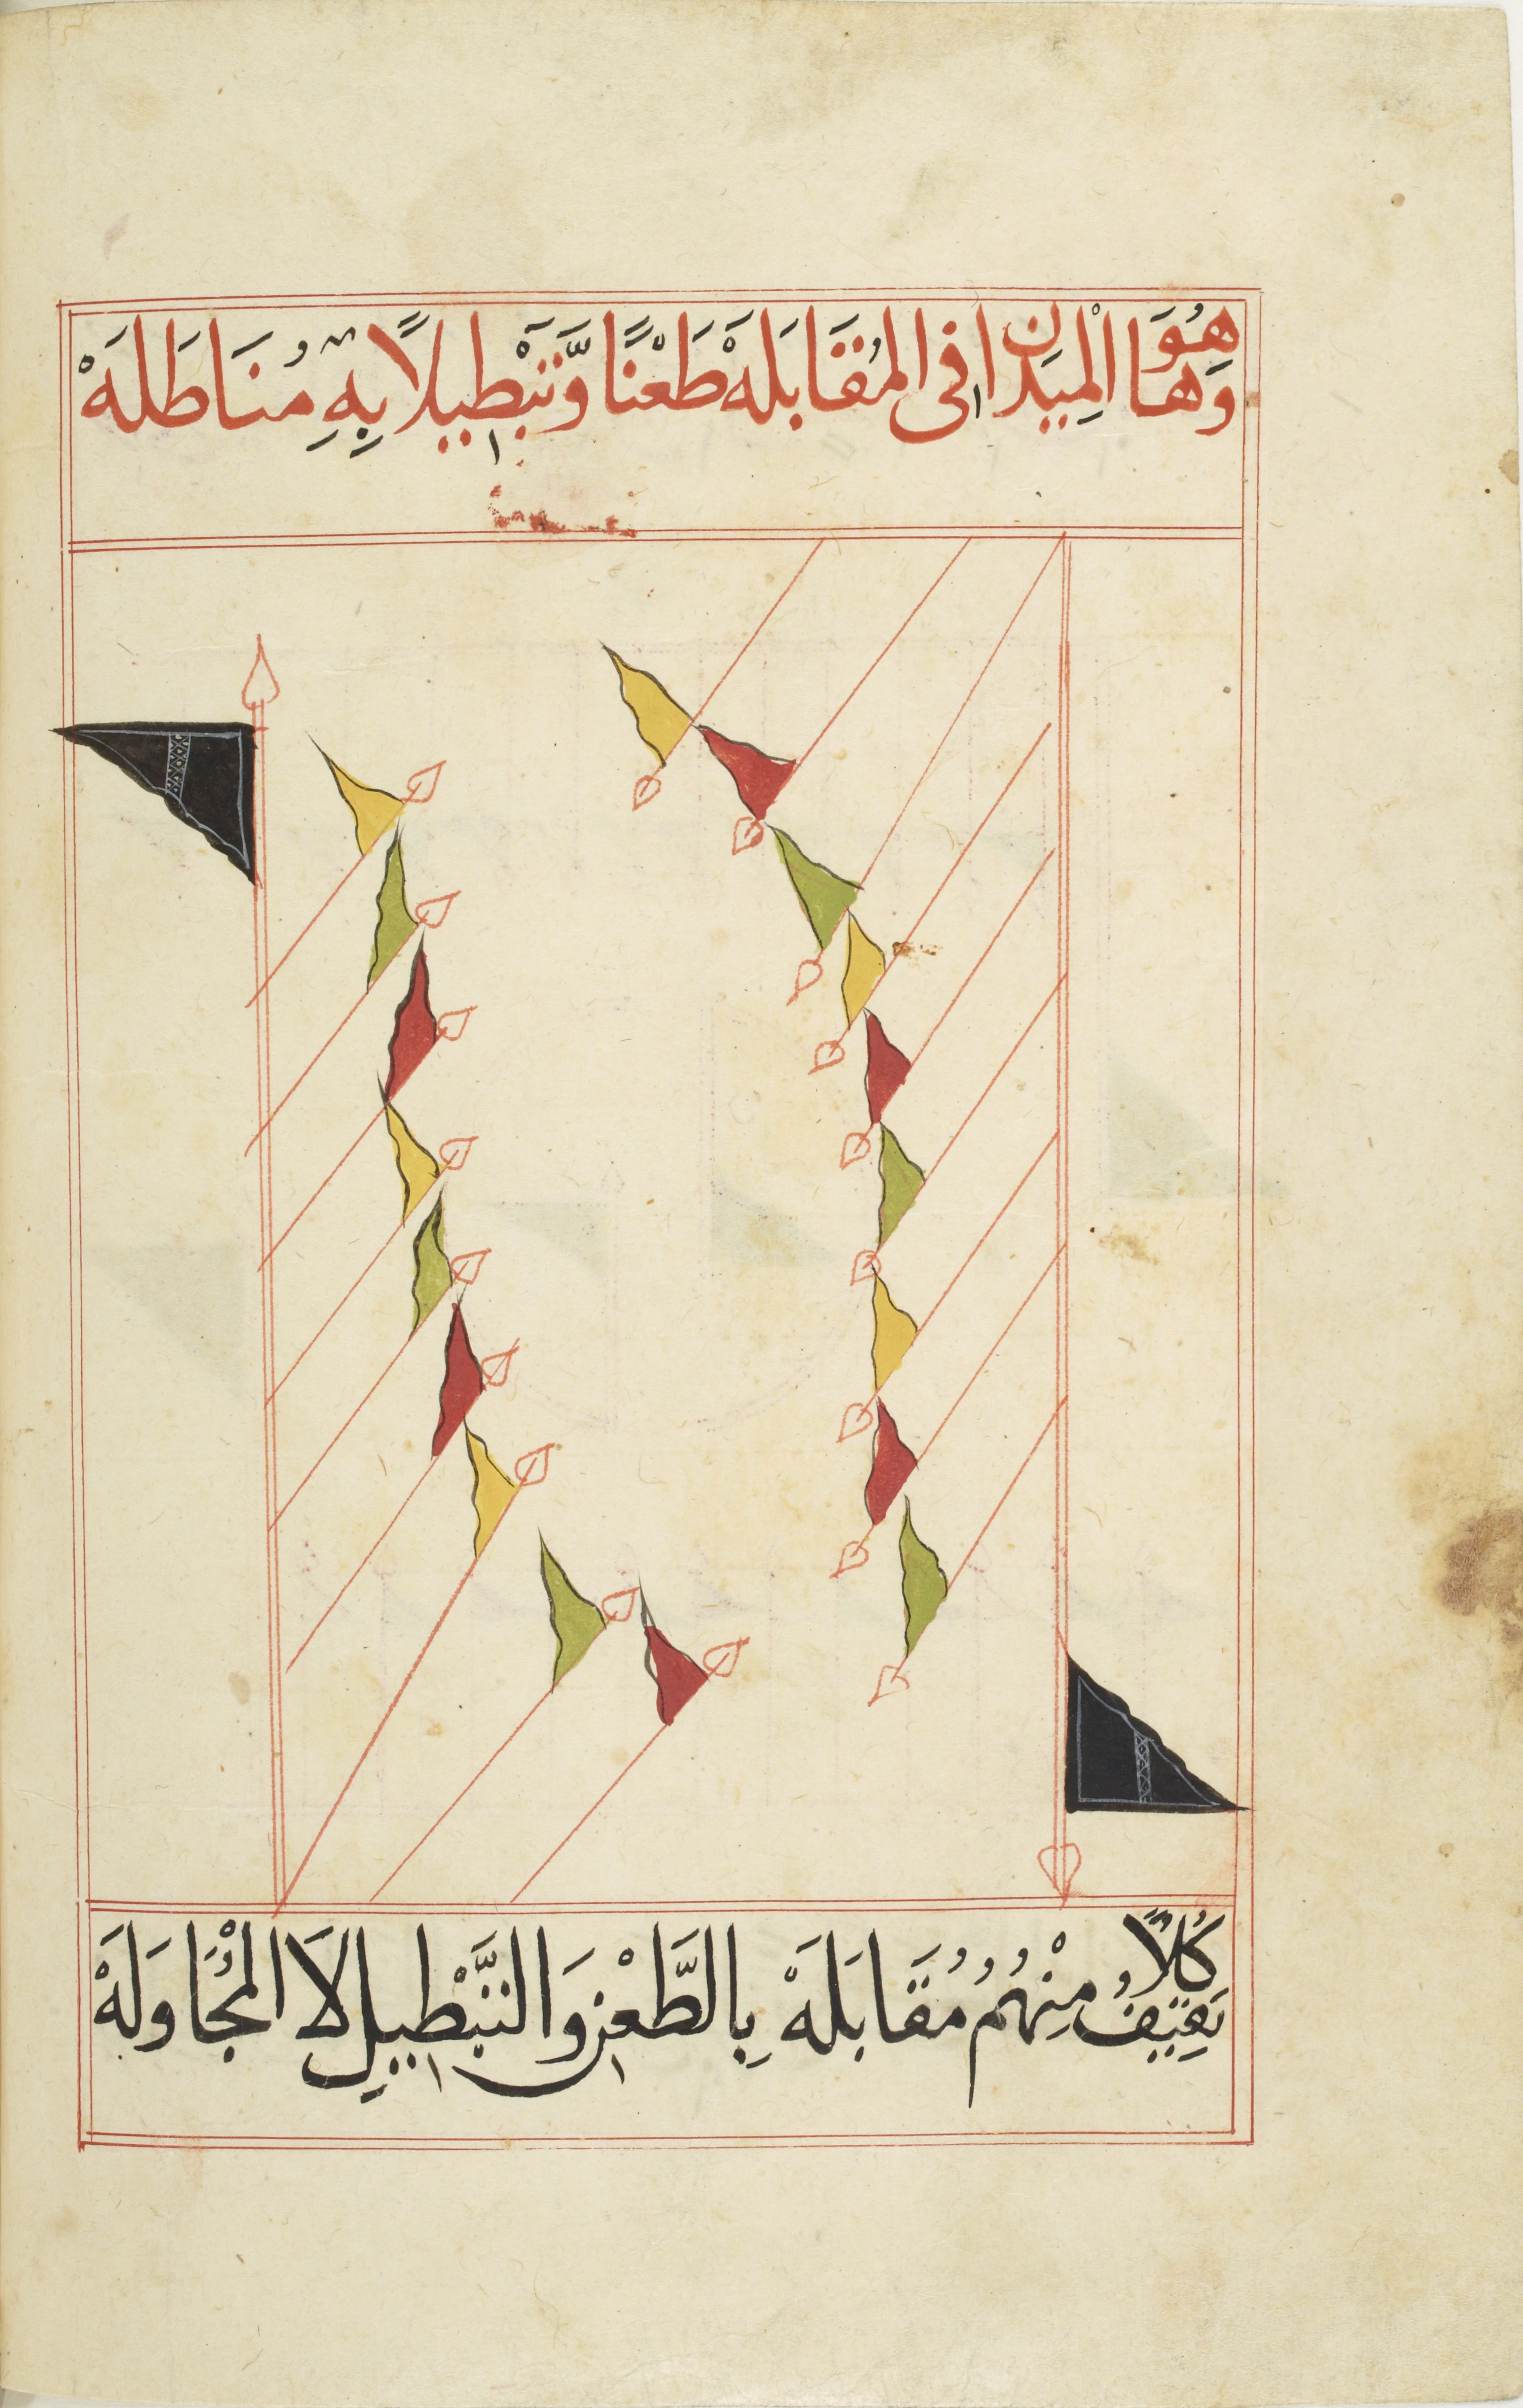 وَهَا هُوَ الْمِيَدان فى المُقَابَلَهْ طَعْنًا وَّتَبْطيلًا بِهِ مُنَاطَلَهْ
كُلًّا يَقِيْفُ مِنْهُمُ مُقَابَلَهْ بِالطَّعْنِ وَالتَّبْطيلِ لاَ المُجْاوَلَهْ